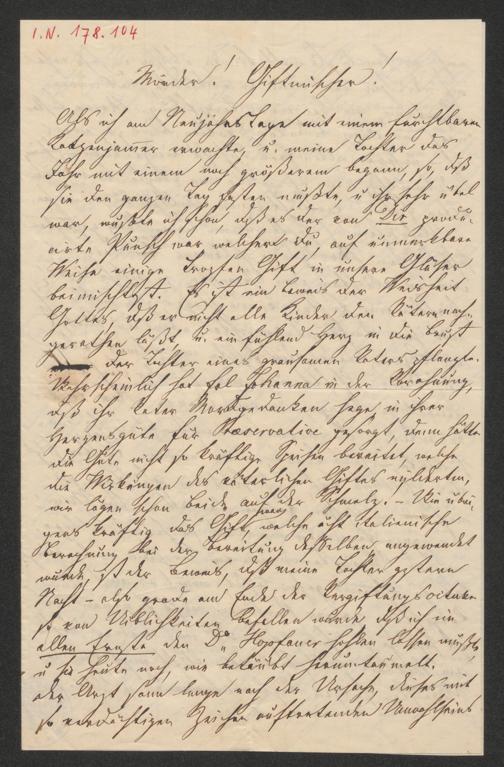 I.N. 178.104
Mörder! Giftmischer!
Als ich am Neujahrs Tage mit einem furchtbaren
Katzenjammer erwachte, u. meine Tochter das
Jahr mit einem noch größerem begann, so, daß
sie den ganzen Tag fasten mußte, u ihr sehr übel
war, wußte ich schon daß es der von Dir produ-
cirte Punsch war welchem Du auf unmerkbare
Weise einige Tropfen Gift in unsere Gläser
beimischtest. Es ist ein Beweis der Weisheit
Gottes, daß er nicht alle Kinder den Vätern nach-
gerathen läßt u. ein fühlend Herz in die Brust
der Tochter eines grausamen Vaters pflanzte.
Wahrscheinlich hat Frl Johanna in der Vorahnung,
daß ihr Vater Mordgedanken hege, in ihrer
Herzensgüte für Präservative gesorgt, denn hätte
die Gute nicht so kräftige Speisen bereitet, welche
die Wirkungen des väterlichen Giftes milderten,
wir lägen schon beide auf der Schmelz. – Wie übri-
gens kräftig das Gift war welche ächt italienische
Berechnung bei der Bereitung desselben angewendet
wurde, ist der Beweis, daß meine Tochter gestern
Nacht – als grade am Ende der Vergiftungsoctave
so von Üblichkeiten befallen wurde daß ich in
allem Ernste den Dr Hopfauer holen lassen mußte,
u sie heute noch, wie betäubt herumtaumelt.
Der Arzt sann lange nach der Ursache, dieses mit
so verdächtigen Zeichen auftretenden Unwohlseins